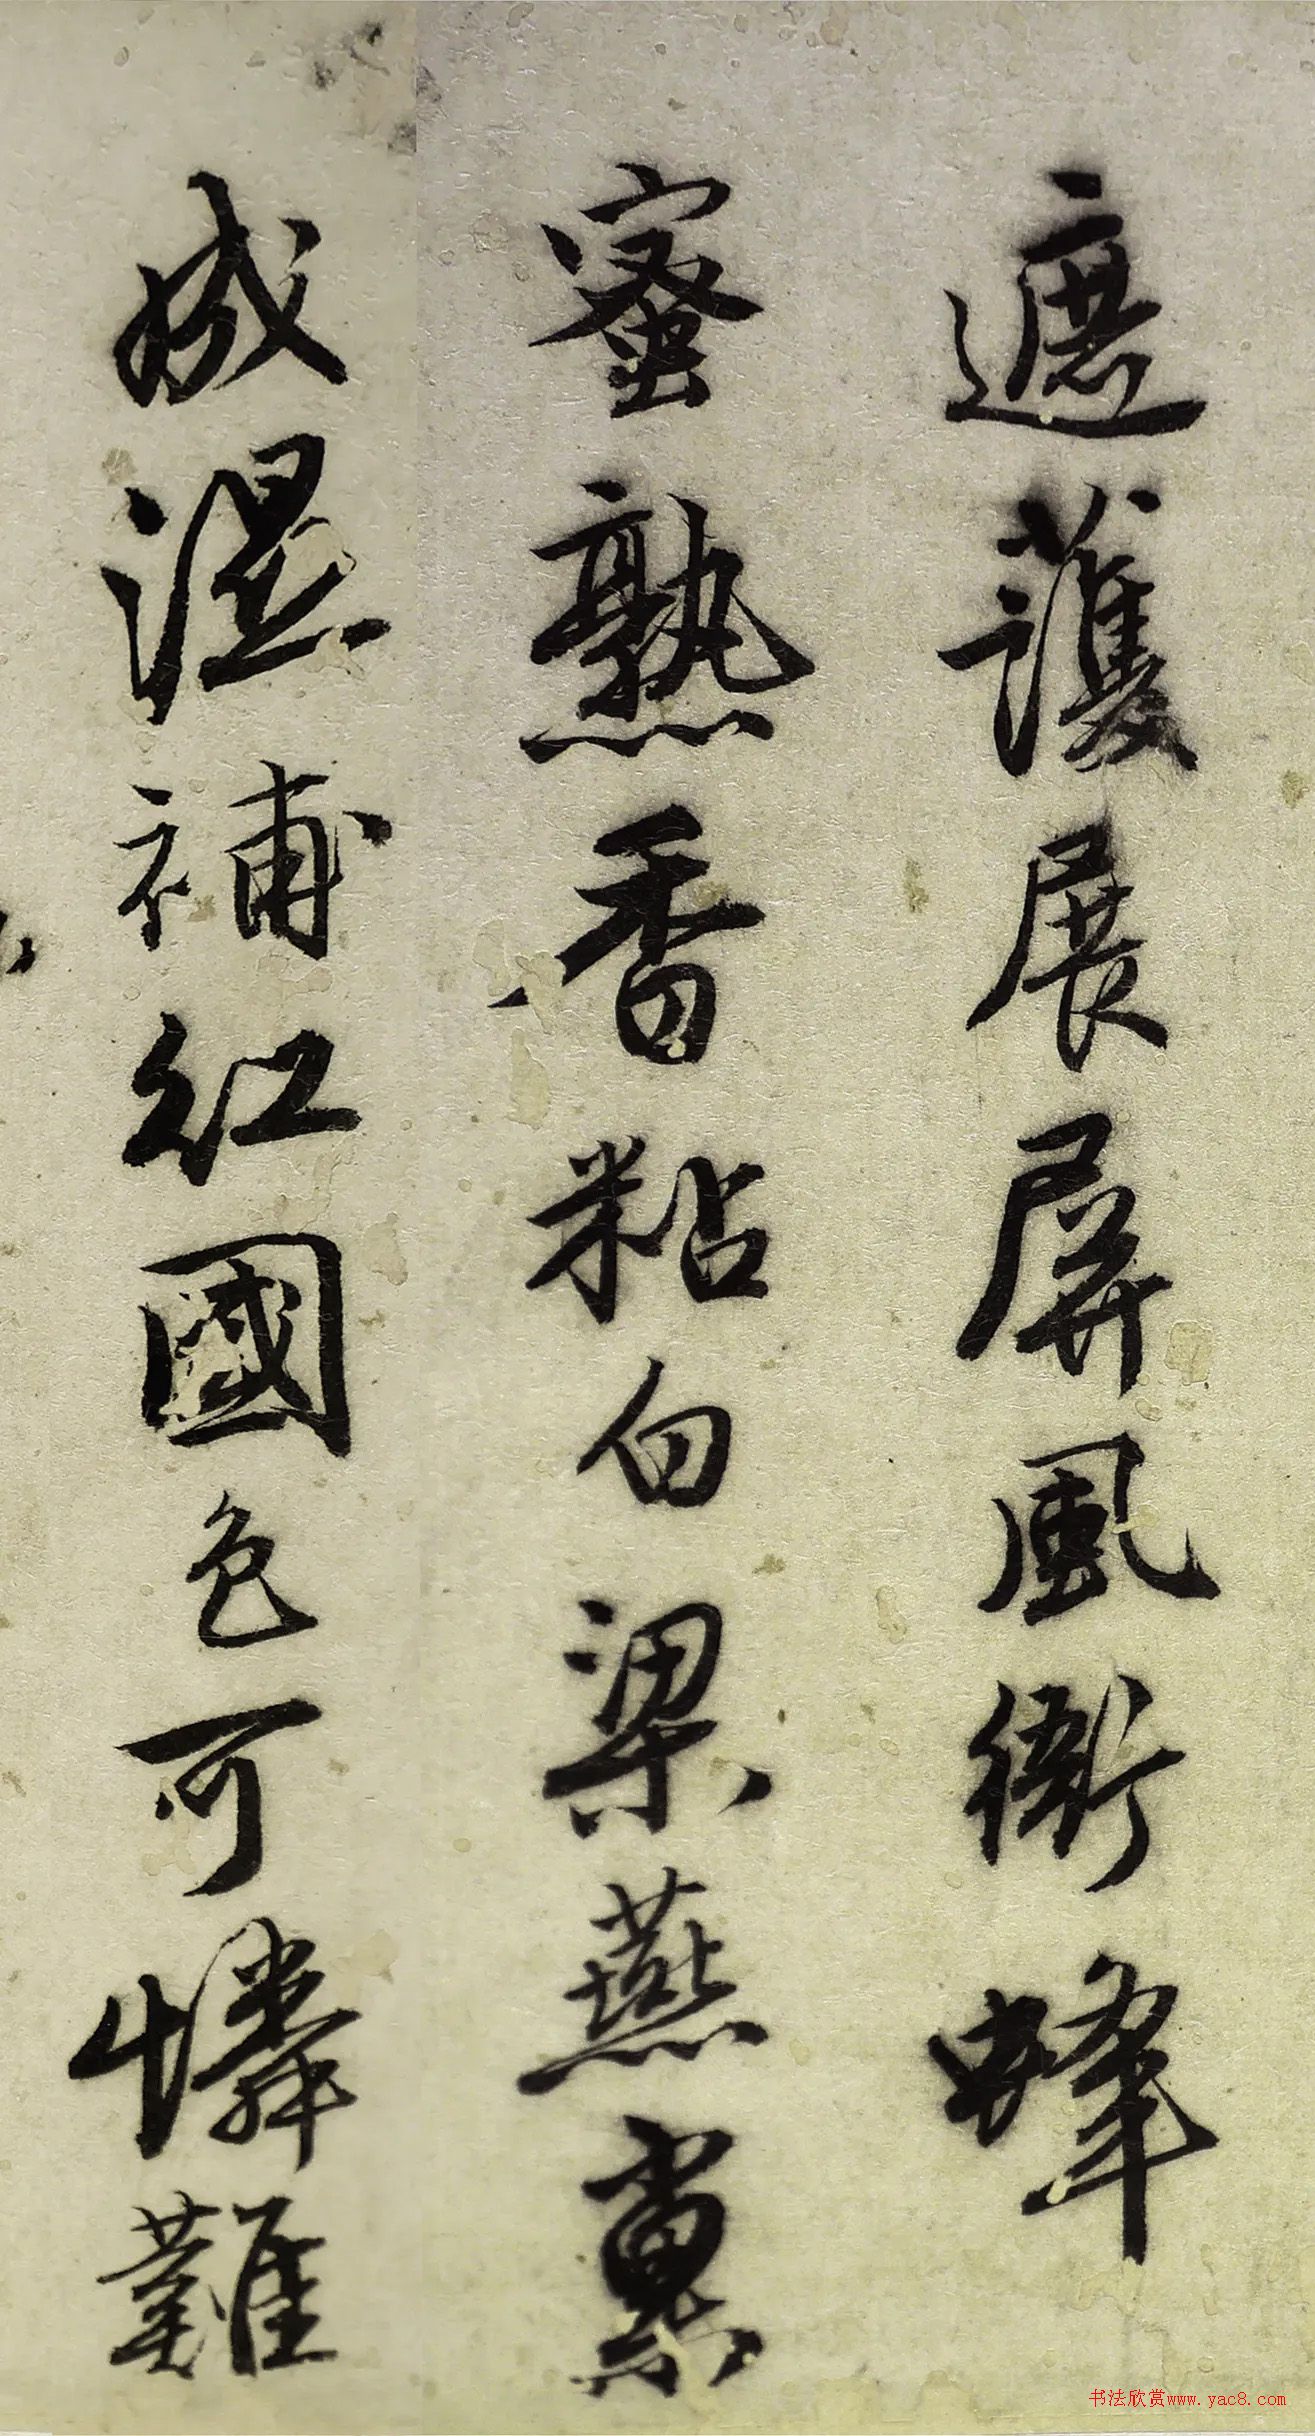 遮護展屏風衙蜂
蜜熟香粘白梁燕巢
成濕補紅國色可憐難
书法欣赏www.yac8.com